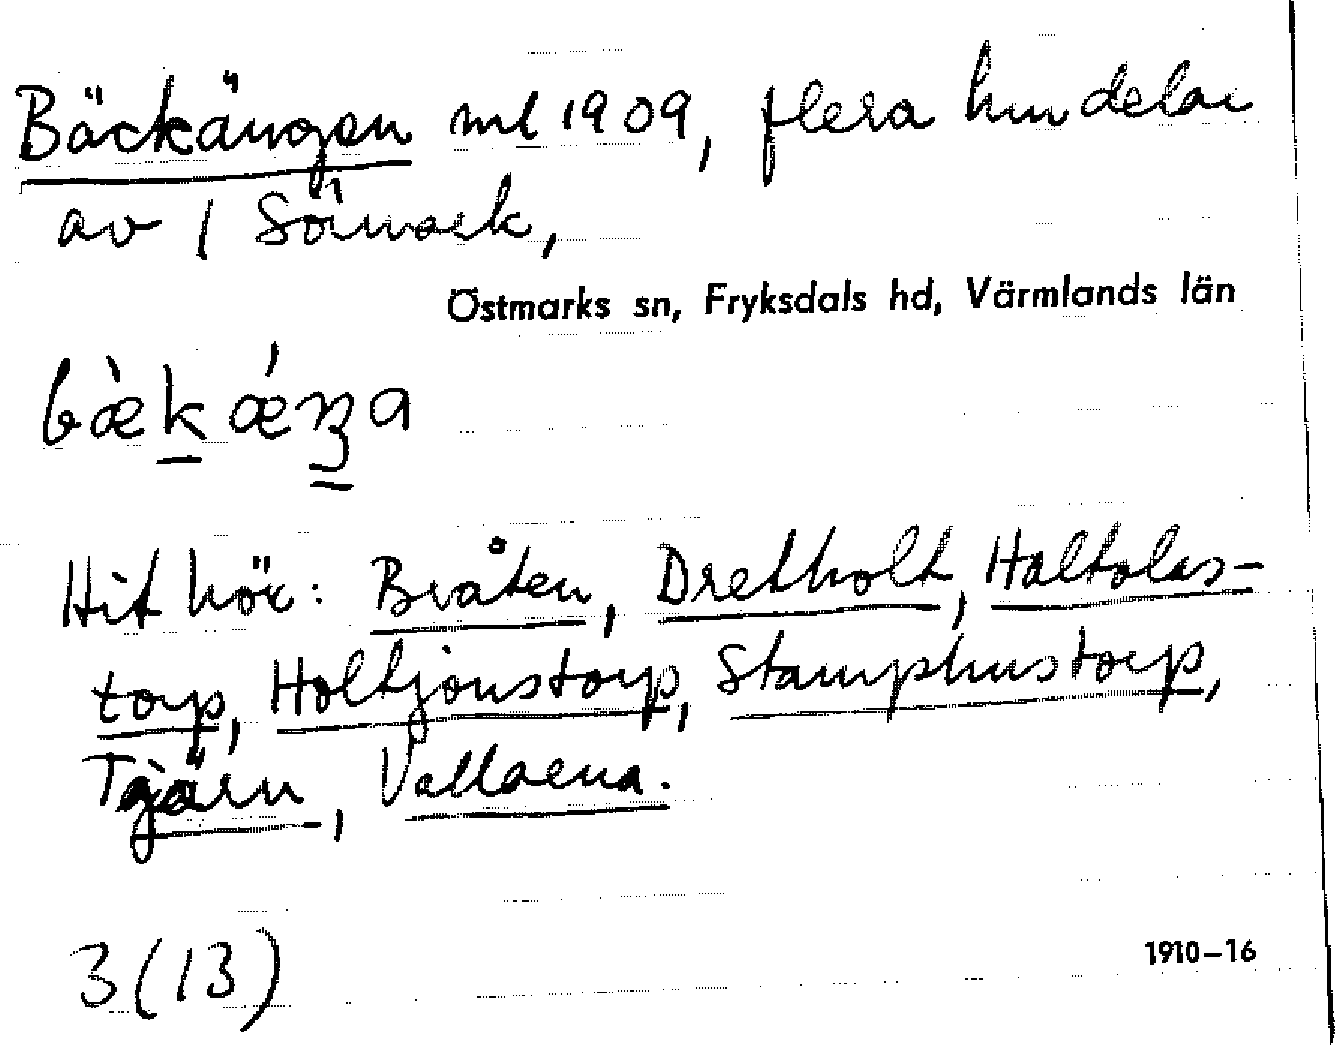 Bäckängen ml 1909, flera hmdelar
av 1 Sörmark,
Östmarks sn, Fryksdals hd, Värmlands län
Hit hör: Bråten, Dretholt, Haltolas-
torp, Holtjönstorp, Stamphustorp,
Tjärn, Vallarna.
3 (13)
1910-16